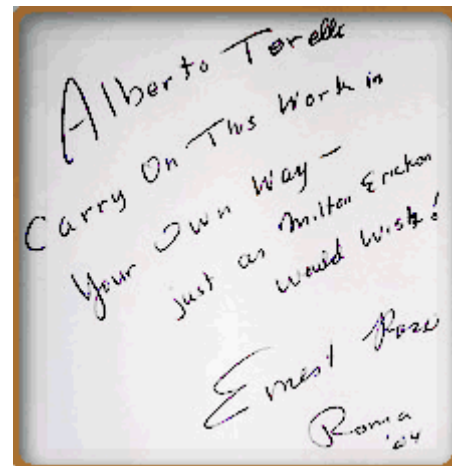 Alberto Torelli
Carry On This Work in
Your Own Way —
just as Milton Erickson
Would Wish!
Ernest Rossi
Roma
'04